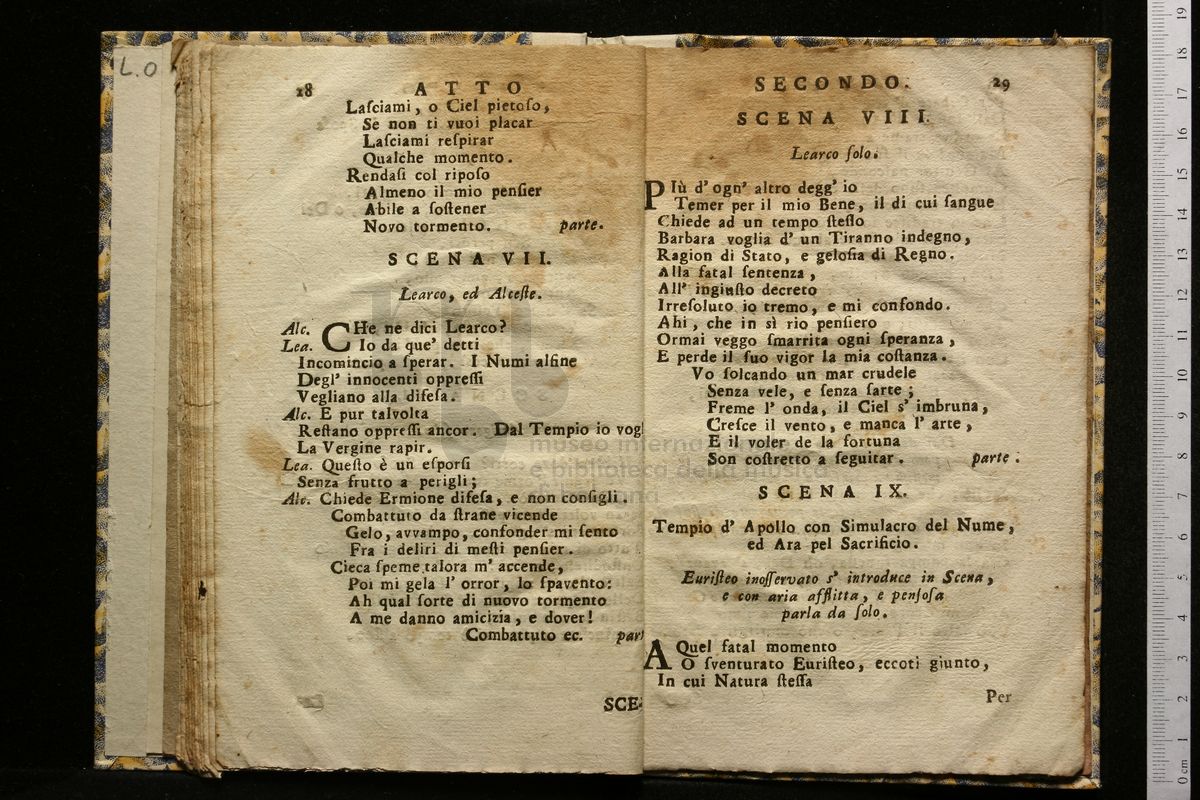 L.O
28 ATTO
Laſciami, o Ciel pietoſo,
Se non ti vuoi placar
Laſciami reſpirar
Qualche momento.
Rendaſi col ripoſo
Almeno il mio penſier
Abile a ſoſtener
Novo tormento. parte.
SCENA VII.
Learco, ed Alceſte.
Alc. CHe ne dici Learco?
Lea. Io da que' detti
Incomincio a ſperar. I Numi alfine
Degl' innocenti oppreſſi
Vegliano alla difeſa.
Alc. E pur talvolta
Reſtano oppreſſi ancor. Dal Tempio io vogl
La Vergine rapir.
Lea. Queſto è un eſporſi
Senza frutto a perigli;
Alc. Chiede Ermione difeſa, e non conſigli.
Combattuto da ſtrane vicende
Gelo, avvampo, confonder mi ſento
Fra i deliri di meſti penſier.
Cieca ſpeme talora m' accende,
Poi mi gela l' orror, lo ſpavento:
Ah qual ſorte di nuovo tormento
A me danno amicizia, e dover!
Combattuto ec. part
SCE-
SECONDO. 29
SCENA VIII.
Learco ſolo.
PIù d' ogn' altro degg' io
Temer per il mio Bene, il di cui ſangue
Chiede ad un tempo ſteſſo
Barbara voglia d' un Tiranno indegno,
Ragion di Stato, e geloſia di Regno.
Alla fatal ſentenza,
All' ingiuſto decreto
Irreſoluto io tremo, e mi confondo.
Ahi, che in sì rio penſiero
Ormai veggo ſmarrita ogni ſperanza,
E perde il ſuo vigor la mia coſtanza.
Vo ſolcando un mar crudele
Senza vele, e ſenza ſarte;
Freme l' onda, il Ciel s' imbruna,
Creſce il vento, e manca l' arte,
E il voler de la fortuna
Son coſtretto a ſeguitar. parte.
SCENA IX.
Tempio d' Apollo con Simulacro del Nume,
ed Ara pel Sacrificio.
Euriſteo inoſſervato s' introduce in Scena,
e con aria afflitta, e penſoſa
parla da ſolo.
A Quel fatal momento
O ſventurato Euriſteo, eccoti giunto,
In cui Natura ſteſſa
Per
museo interna
e biblioteca della musica